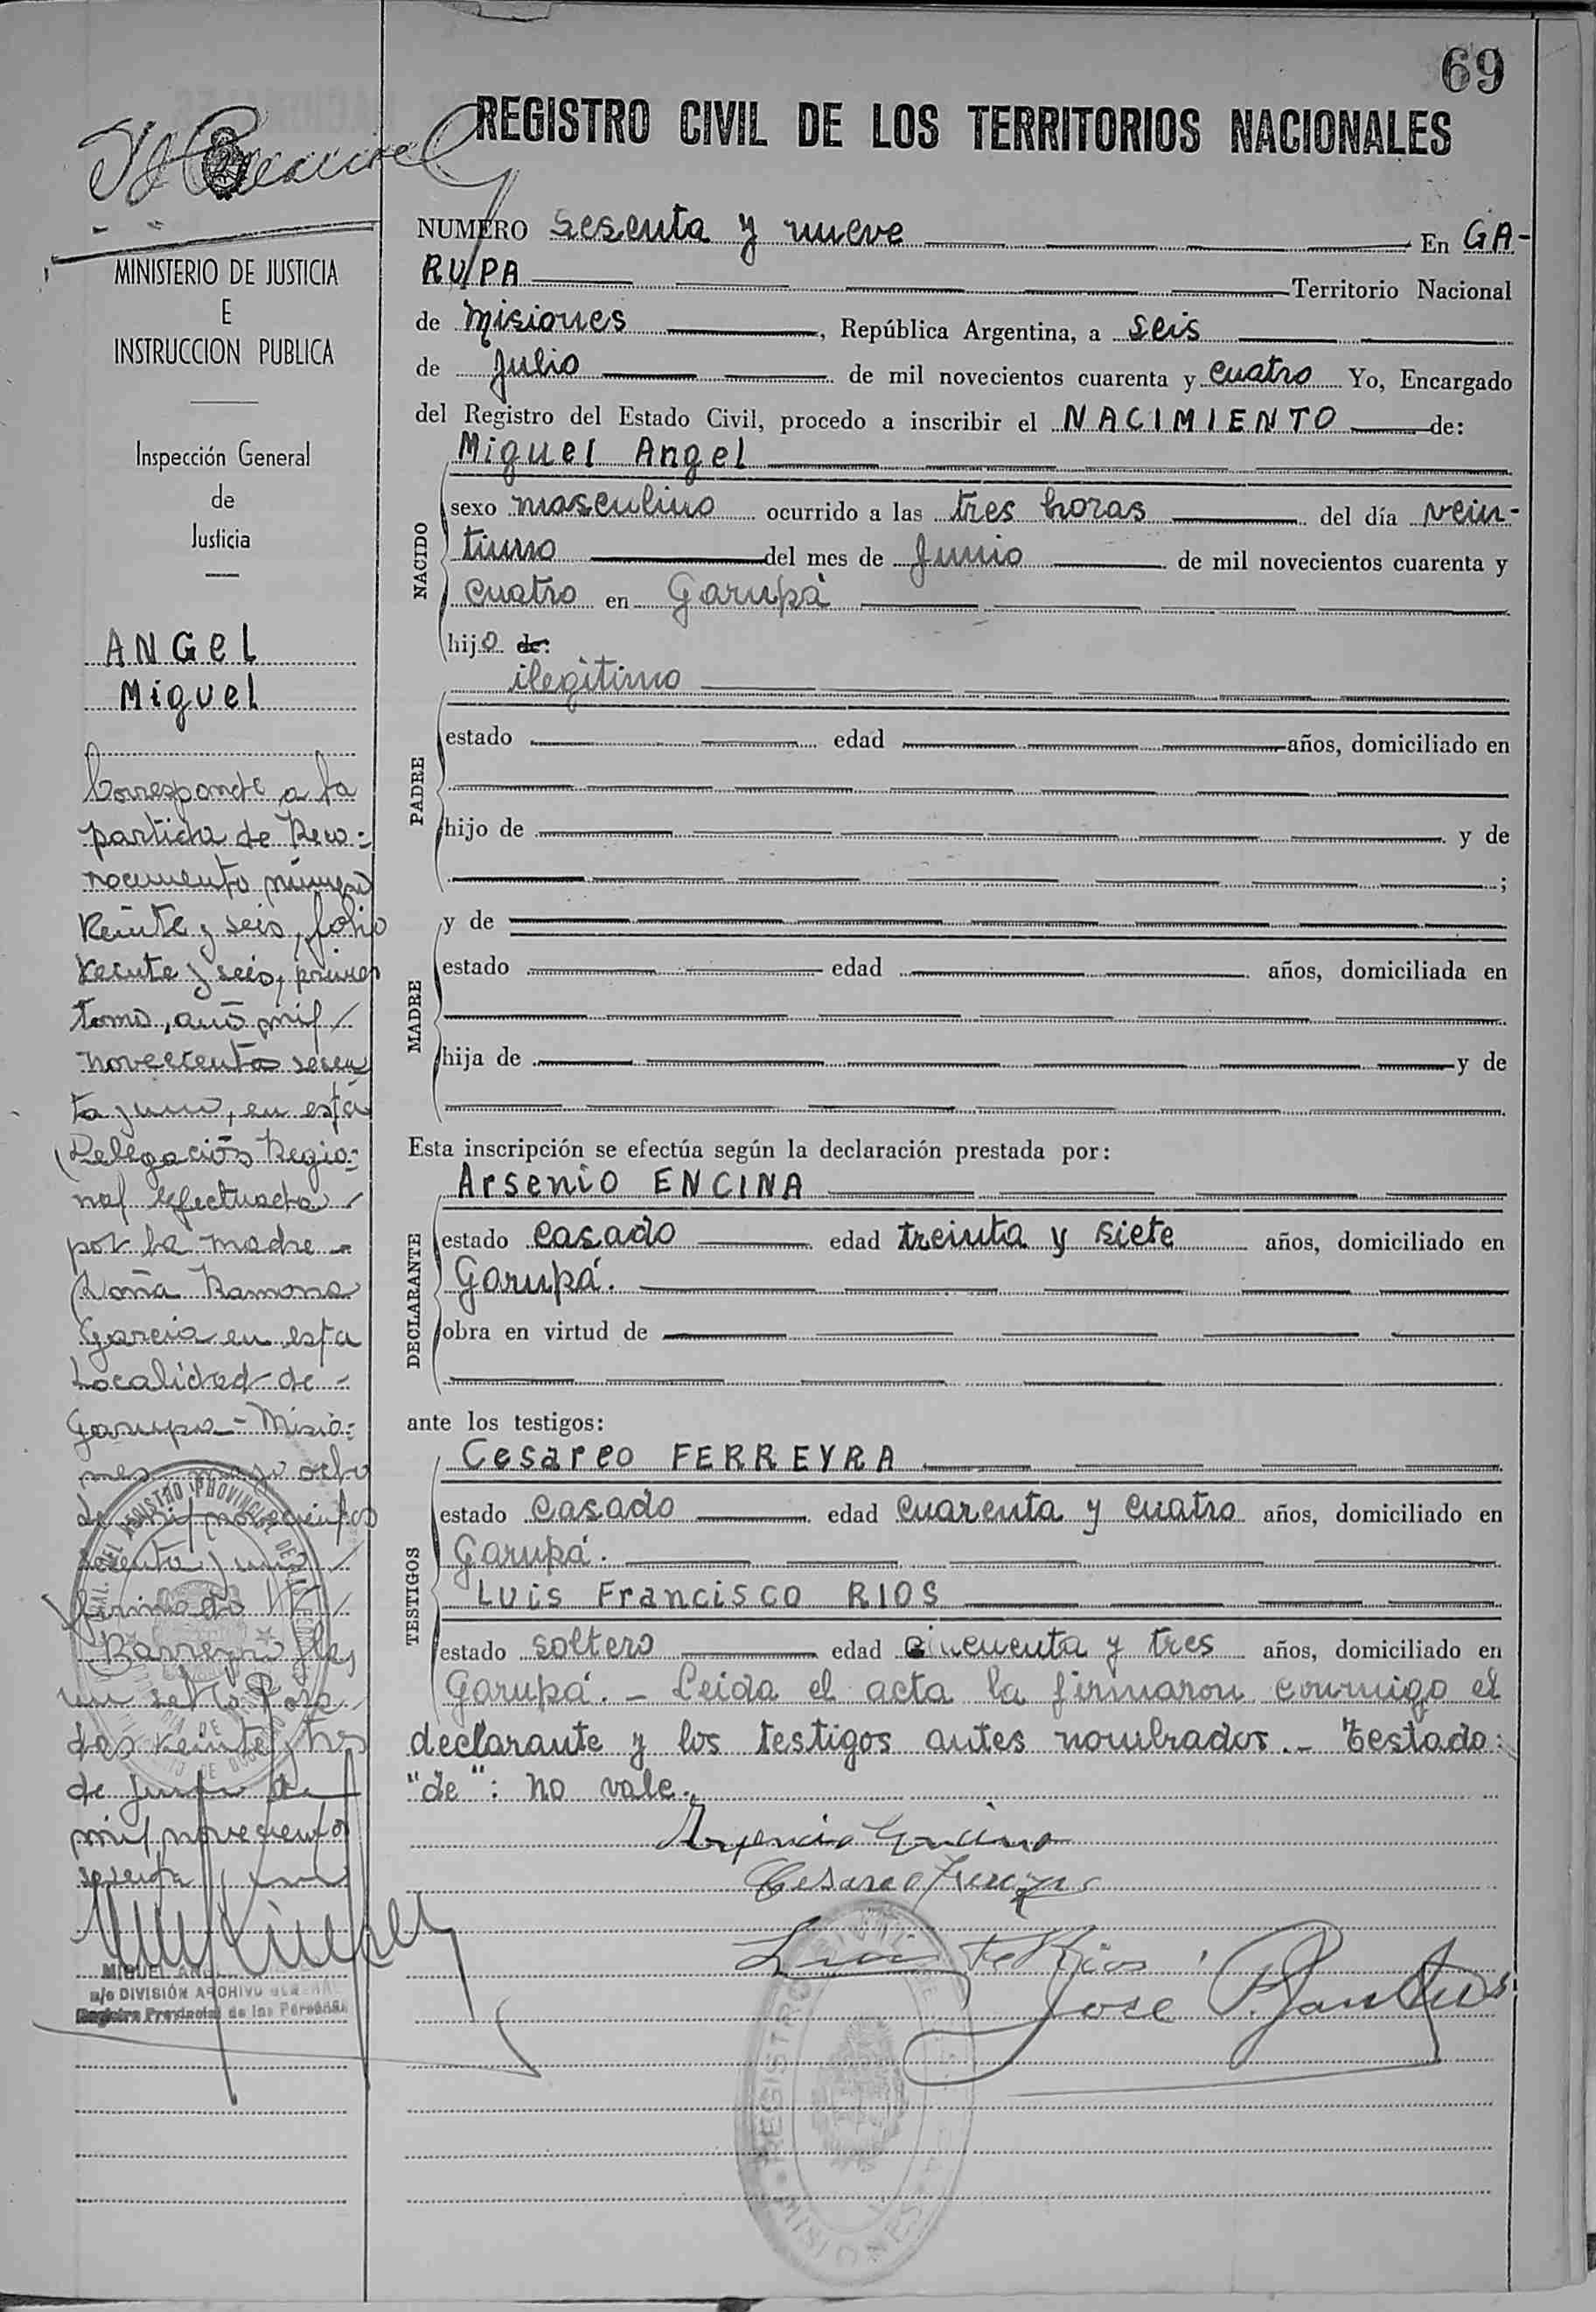 69
REGISTRO CIVIL DE LOS TERRITORIOS NACIONALES
MINISTERIO DE JUSTICIA
E
INSTRUCCION PUBLICA
Inspección General
de
Justicia
ANGel
Miguel
Corresponde a la
partida de Reco-
nocimiento número
veinte y seis, folio
veinte y seis, primer
tomo, año mil
novecientos sesen
ta y uno, en esta
Delegación Regio-
nal efectuada
por la madre
Doña Ramona
Garcia en esta
Localidad de
Garupa - Misio-
nes mayo ocho
de mil novecientos
sesenta y uno
firmado
Barreyro
un sello Posa
das veinte y tres
de
mil novecientos
sesenta y uno
MIGUEL
a/c DIVISIÓN ARCHIVO GENERAL
Registro Provincial de las Personas
NUMERO sesenta y nueve En GA-
RUPA Territorio Nacional
de Misiones, República Argentina, a seis
de Julio de mil novecientos cuarenta y cuatro Yo, Encargado
del Registro del Estado Civil, procedo a inscribir el NACIMIENTO de:
Miguel Angel
NACIDO
sexo masculino ocurrido a las tres horas del día vein-
tiuno del mes de Junio de mil novecientos cuarenta y
cuatro en Garupá
hijo de:
ilegitimo
PADRE
estado edad años, domiciliado en
hijo de y de
;
MADRE
y de
estado edad años, domiciliada en
hija de y de
Esta inscripción se efectúa según la declaración prestada por:
Arsenio ENCINA
DECLARANTE
estado casado edad treinta y siete años, domiciliado en
Garupá.
obra en virtud de
ante los testigos:
Cesareo FERREYRA
TESTIGOS
estado casado edad cuarenta y cuatro años, domiciliado en
Garupá.
Luis Francisco RIOS
estado soltero edad cincuenta y tres años, domiciliado en
Garupá. - Leida el acta la firmaron conmigo el
declarante y los testigos antes nombrados. - Testado:
"de": no vale.
Arsencio Encina
Cesareo Ferreyra
Luis Rios
Jose
REGISTRO CIVIL
MISIONES